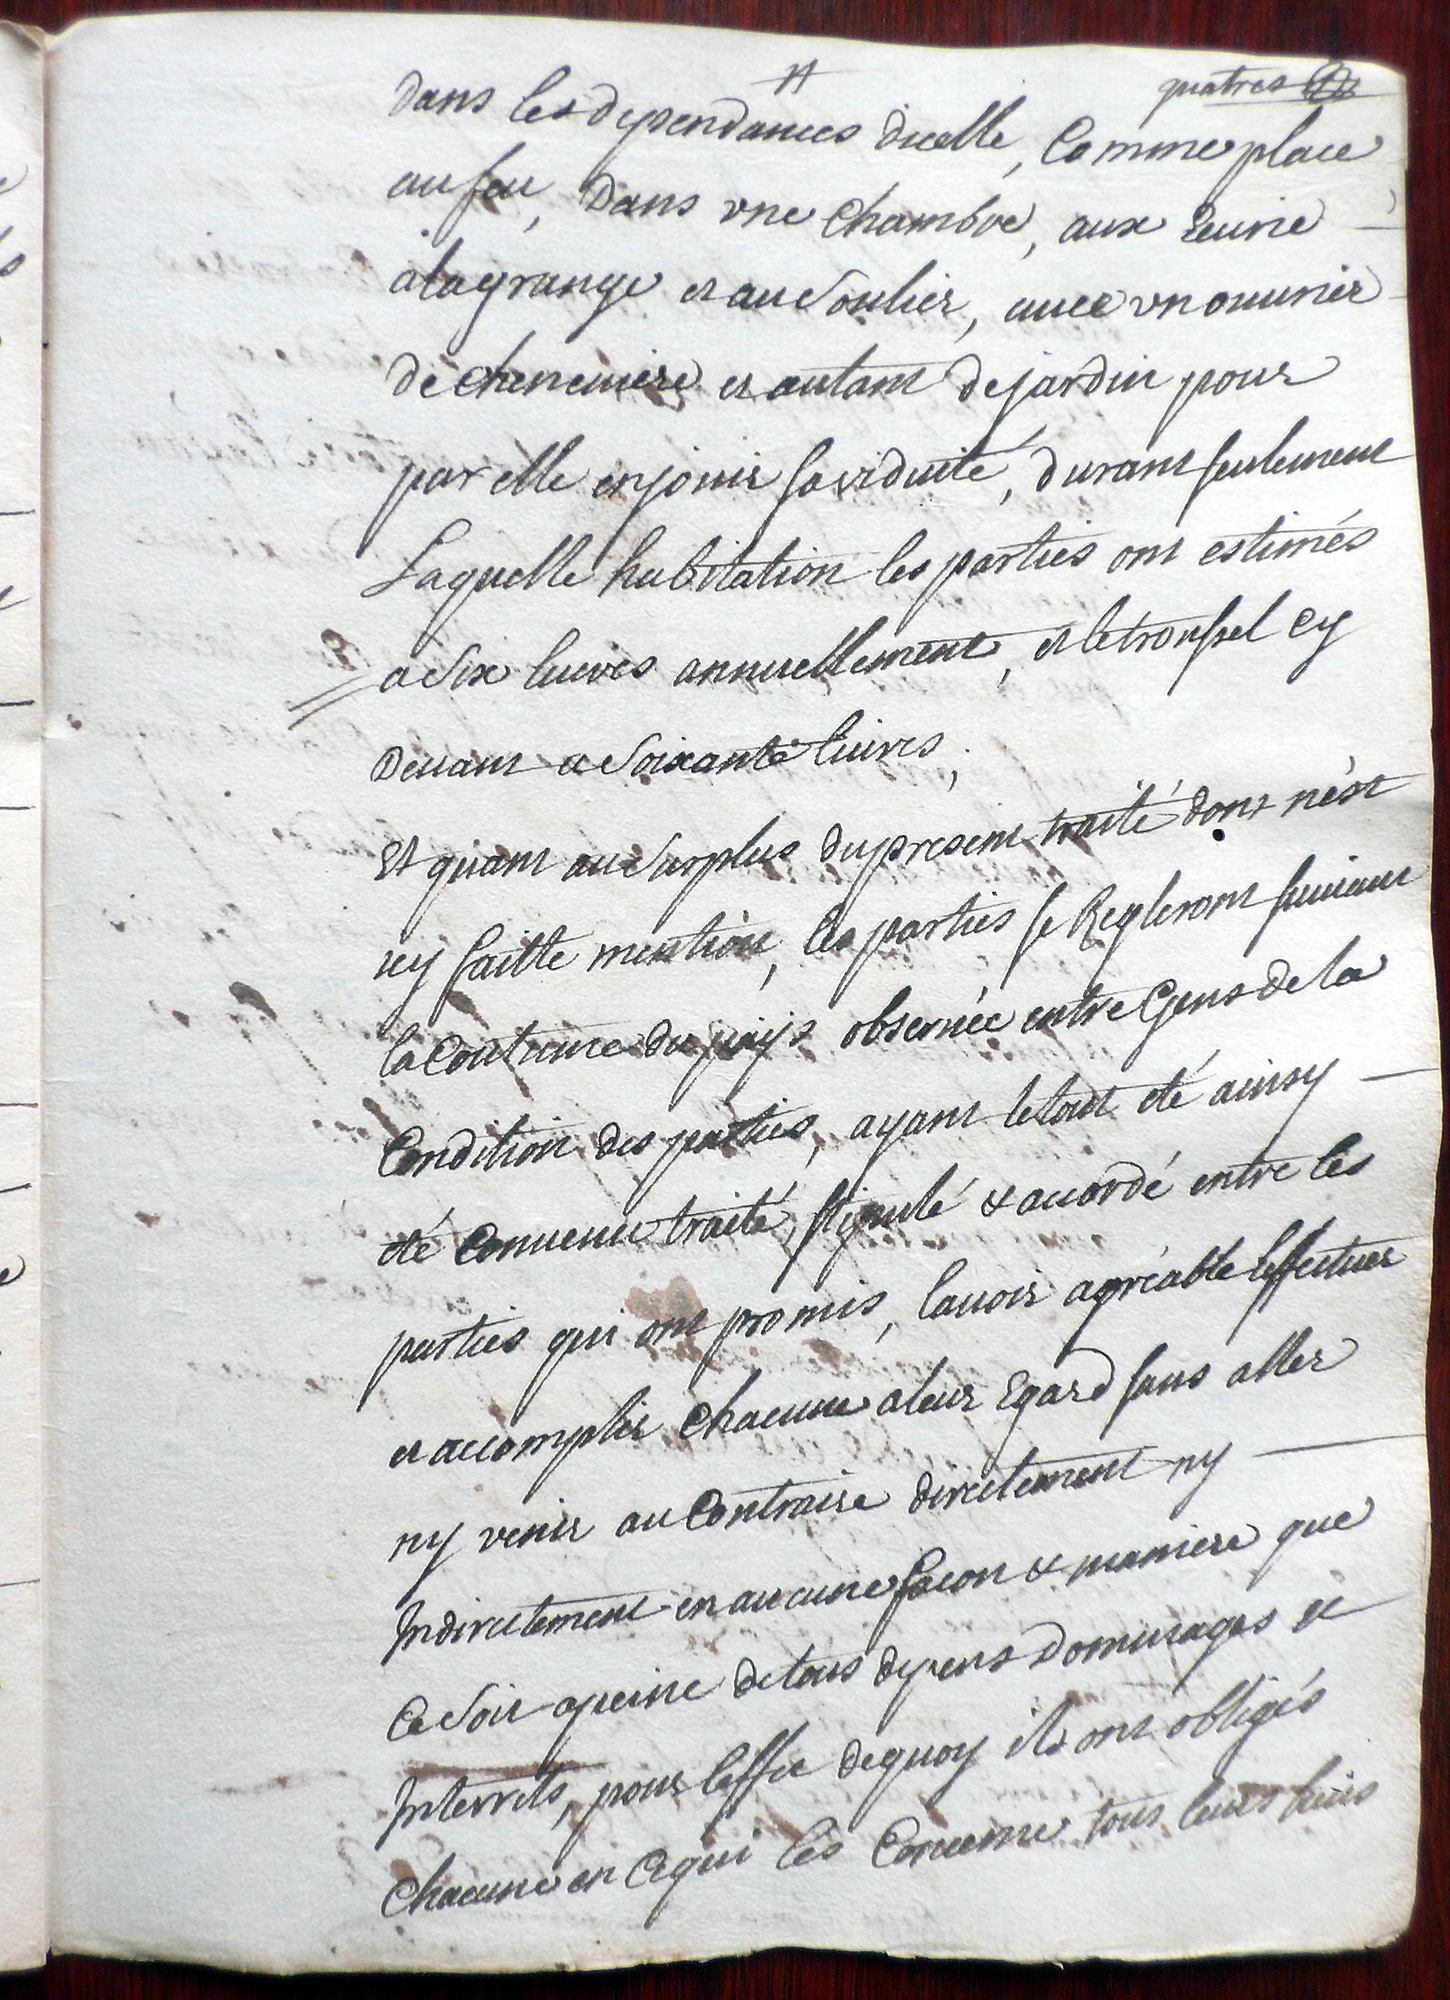 quatres
dans les dependances dicelle, Comme place
au feu, Dans vne Chambre, aux Ecurie
a la grange et au Soulier, auec vn ouurier
de cheneuiere et autant de jardin pour
par elle en jouir sa viduité, durant seulement
Laquelle habitation les parties ont estimés
a Six liures annuellement, et le troussel cy
Deuant a Soixante liures,
Et quant au Surplus du present traité dont n'est
icy faitte mention, les parties se Regleront suiuant
la Coutume du pays obseruée entre Gens de la
Condition des parties, ayant le tout eté ainsy
eté Conuenu traité, stipulé & accordé entre les
parties qui ont promis, lauoir agréable leffectuer
et accomplir Chacune a leur Egard sans aller
ny venir au Contraire directement ny
Indirectement en aucune facon & maniere que
Ce Soit a peine de tous depens dommages et
Interrets, pour leffet de quoy ils ont obligés
Chacune en Cequi les Concerne tous leurs biens